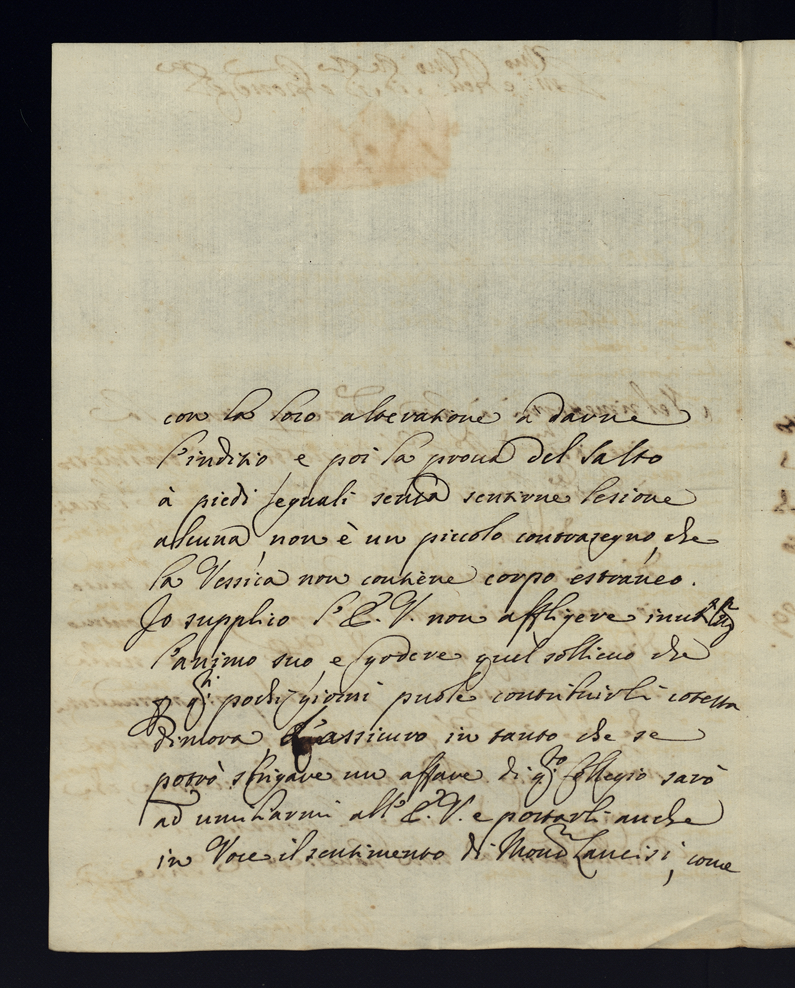 con la loro alterazione à darne
l'indizio e poi la prova del salto
à piedi eguali senza sentirne lesione
alcuna, non è un piccolo contrasegno, che
la Vessica non contiene corpo estraneo.
Io supplico l'E. V. non affligere
l'animo suo, e godere quel sollievo che
pochi giorni puole contribuirli cotesta
dimora, L'assicuro in tanto che se
potrò sbrigare un affare di q.to Collegio sarò
ad umiliarmi all'E. V. e portarli anche
in Voce il sentimento di Mons.r Lancisi, come